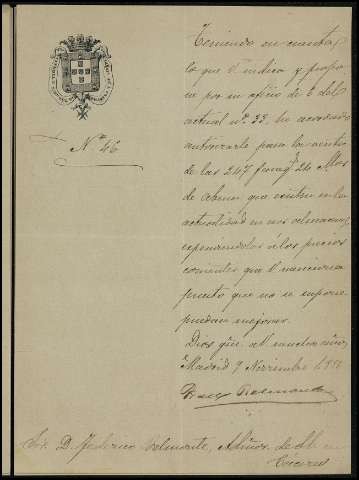 Nº 46
Teniendo en cuenta
lo que V. indica y propo
ne por su oficio de 6 del
actual nº 33, he acordado
autorizarle para la venta
de las 247 faneg.s 24
de que existen en la
actualidad en esos almacenes,
expendiendolas a los precios
corrientes que V. menciona
puesto que no se supone
puedan mejorar.
Dios gûe. a V. muchos años,
Madrid 9 Noviembre
Sor. D. Federico Belmonte, Admor. de
Cáceres